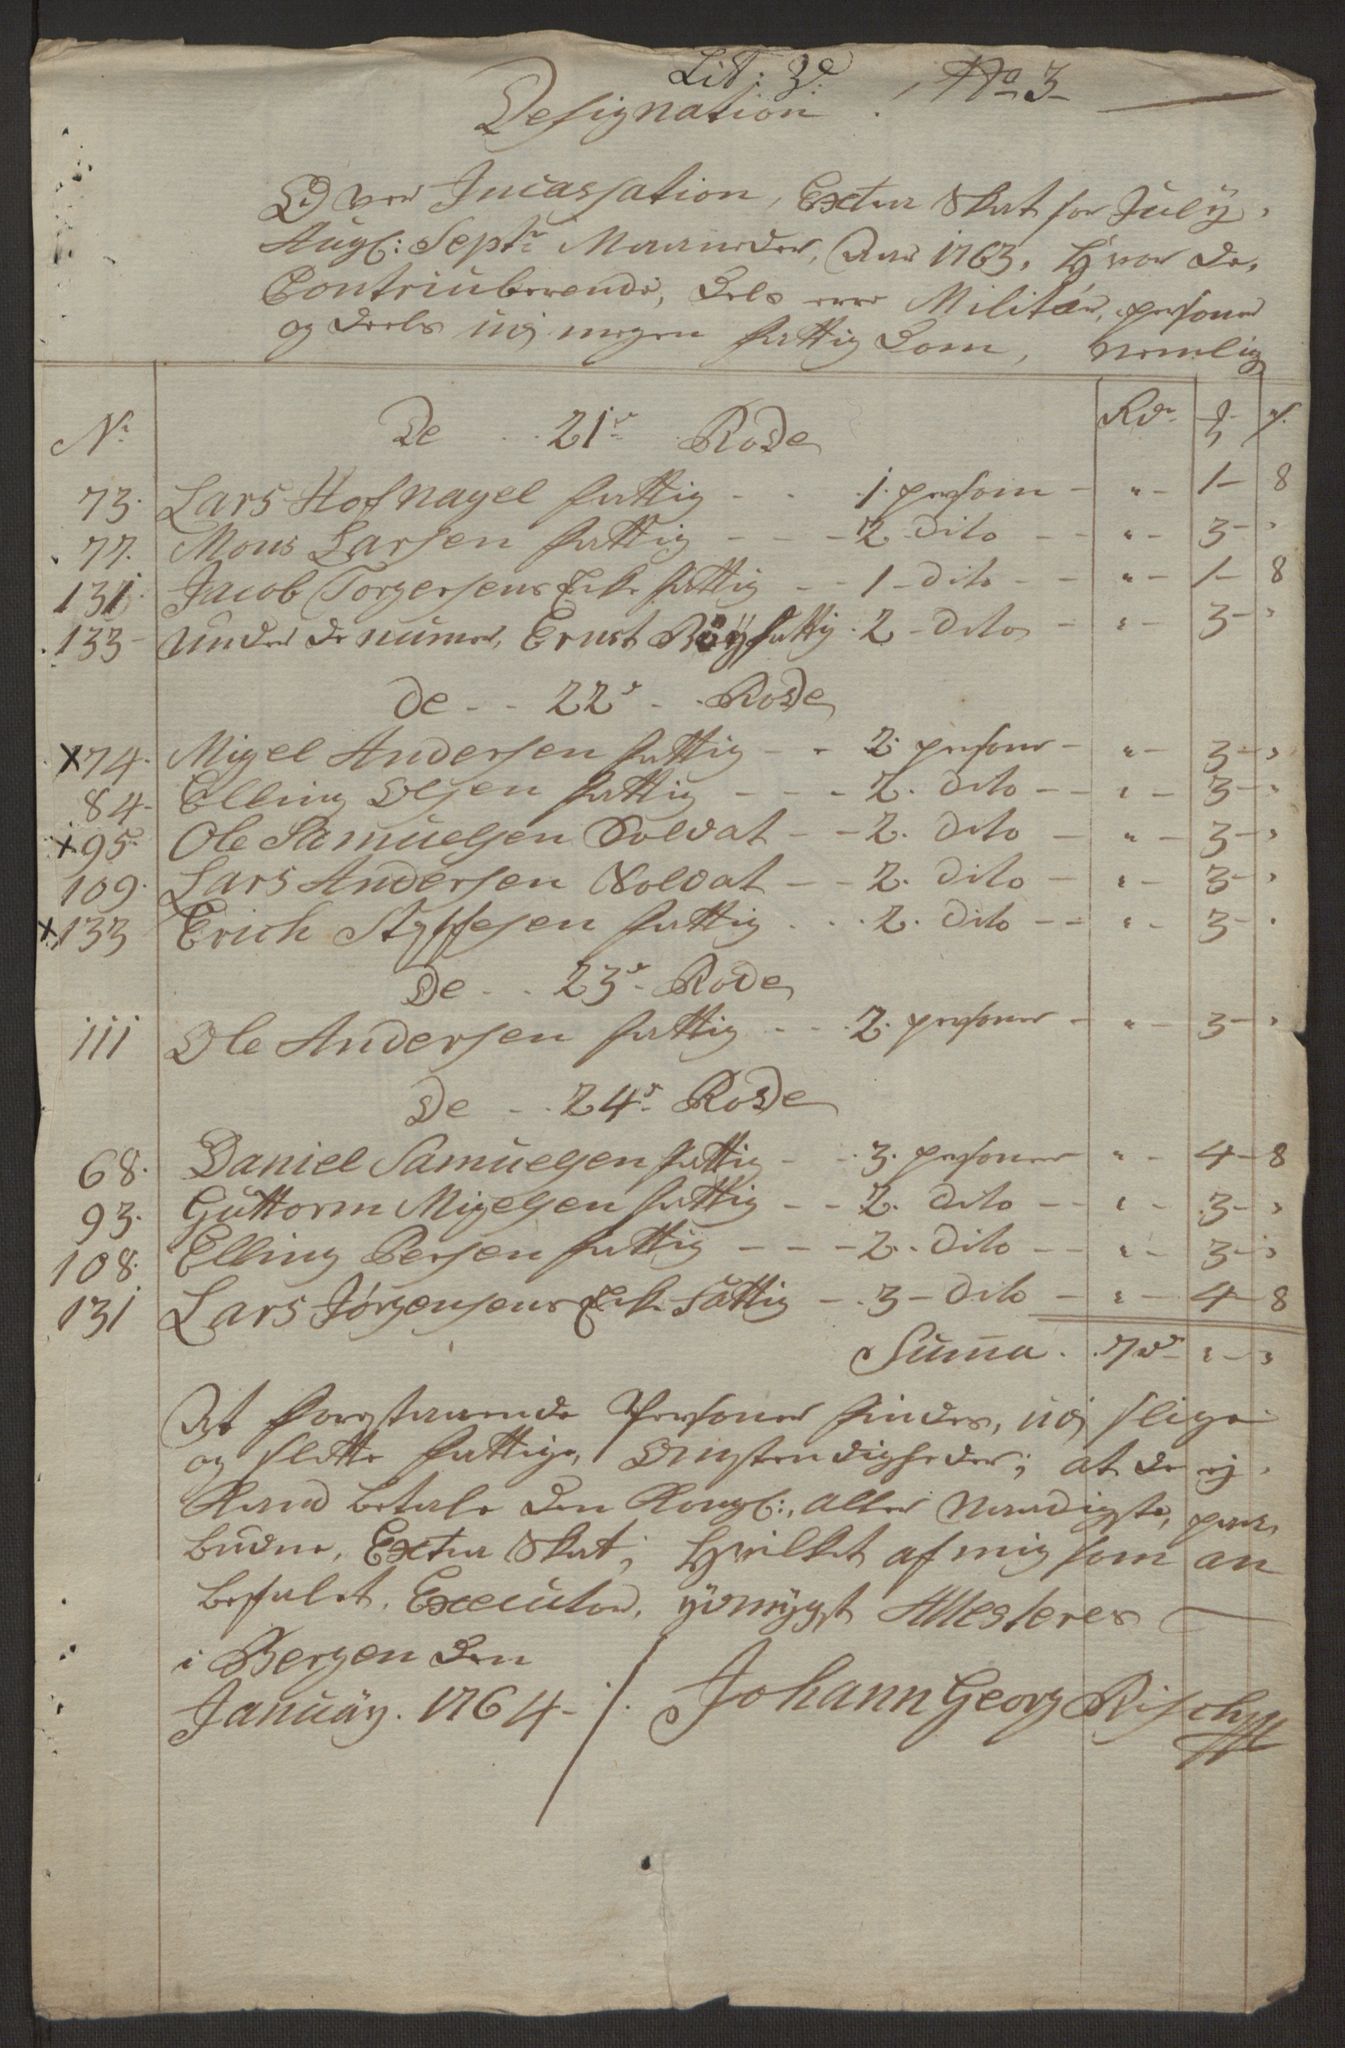 Lit: 3e No 3
Designation
Over Incassation, Extra Skat for July,
Augl: Septr Maaneder, Aar 1763, Hvor de,
Contriuberende, Dels ere Militær, personer
og deels udj megen fattig Dom, nemlig
Nr De 21r Rode Rdr ƺ
73. Lars Hofnagel fattig - - 1. persom - " - 1 - 8
77. Mons Larsen fattig - - - 2. dito - - " - 3 - "
131. Jacob Torgersens Enke fattig - - 1 - dito - - " - 1 - 8
133 - under de numer, Ernst Röy fattig. 2 - dito - " - 3 - "
De - - 22r - - Rode
x 74. Migel Andersen fattig - - 2. personer - " - 3 - "
84 - Elling Olsen fattig - - - 2. dito - - " - 3 - "
x 95. Ole Samuelsen Soldat - - 2. dito - " - 3 - "
109. Lars Andersen Soldat - - 2. dito - " - 3 - "
x 133 Erich Styffesen fattig - - - 2. dito - - " - 3 - "
De - - 23r - Rode
111 Ole Andersen fattig - - 2. personer - " - 3 - "
De - - 24r - Rode
68. Daniel Samuelsen fattig - - 3. personer " - 4 - 8
93. Guttorm Migelsen fattig - - 2. dito - - " - 3 - "
108. Elling Persen fattig - - - 2. dito - - " - 3 - "
131 Lars Jörgensens Enke fattig - 3 - dito - " - 4 - 8
Summa. 7 - " - "
At forestaaende Personer findes, udj slige
og slette fattige, Omstendigheder; at de ej
Kand betale den Kongl:, Aller Naadigste, paa,
budne, Extra Skat; Hvilket af mig som an
befalet, Executor, ydmygst Attesteres
i Bergen den
Januäy. 1764 - Johann Georg